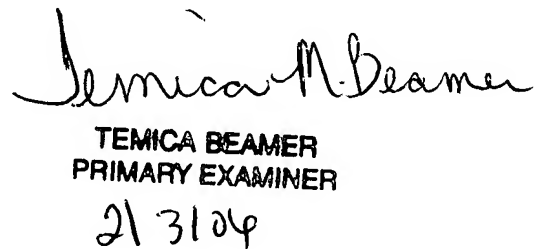 Temica M. Beamer
TEMICA BEAMER
PRIMARY EXAMINER
2/3/04